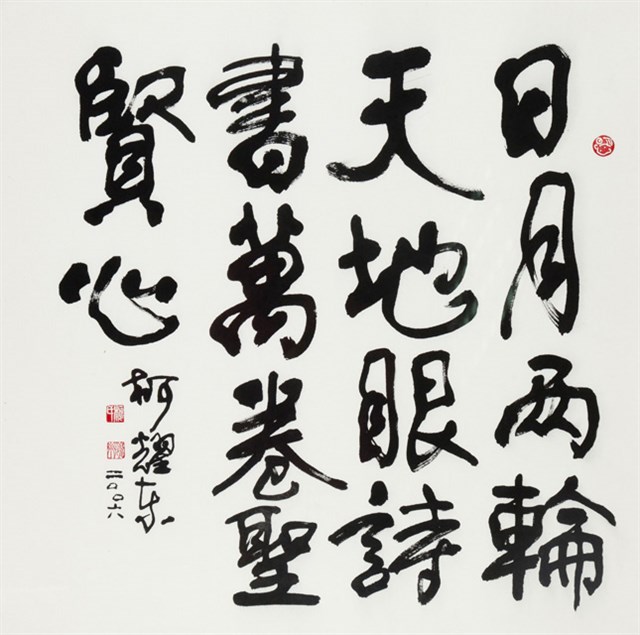 日月两輪
天地眼詩
書萬卷聖
賢心
柯耀东
二〇〇六